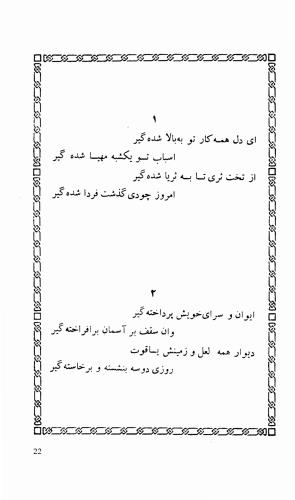 ۱
ای دل همه کار تو به‌بالا شده گیر
اسباب تو یکشبه مهیا شده گیر
از تخت ثری تا به ثریا شده گیر
امروز چودی گذشت فردا شده گیر
۲
ایوان و سرای خویش پرداخته گیر
وان سقف بر آسمان برافراخته گیر
دیوار همه لعل و زمینش یاقوت
روزی دوسه بنشسته و برخاسته گیر
22